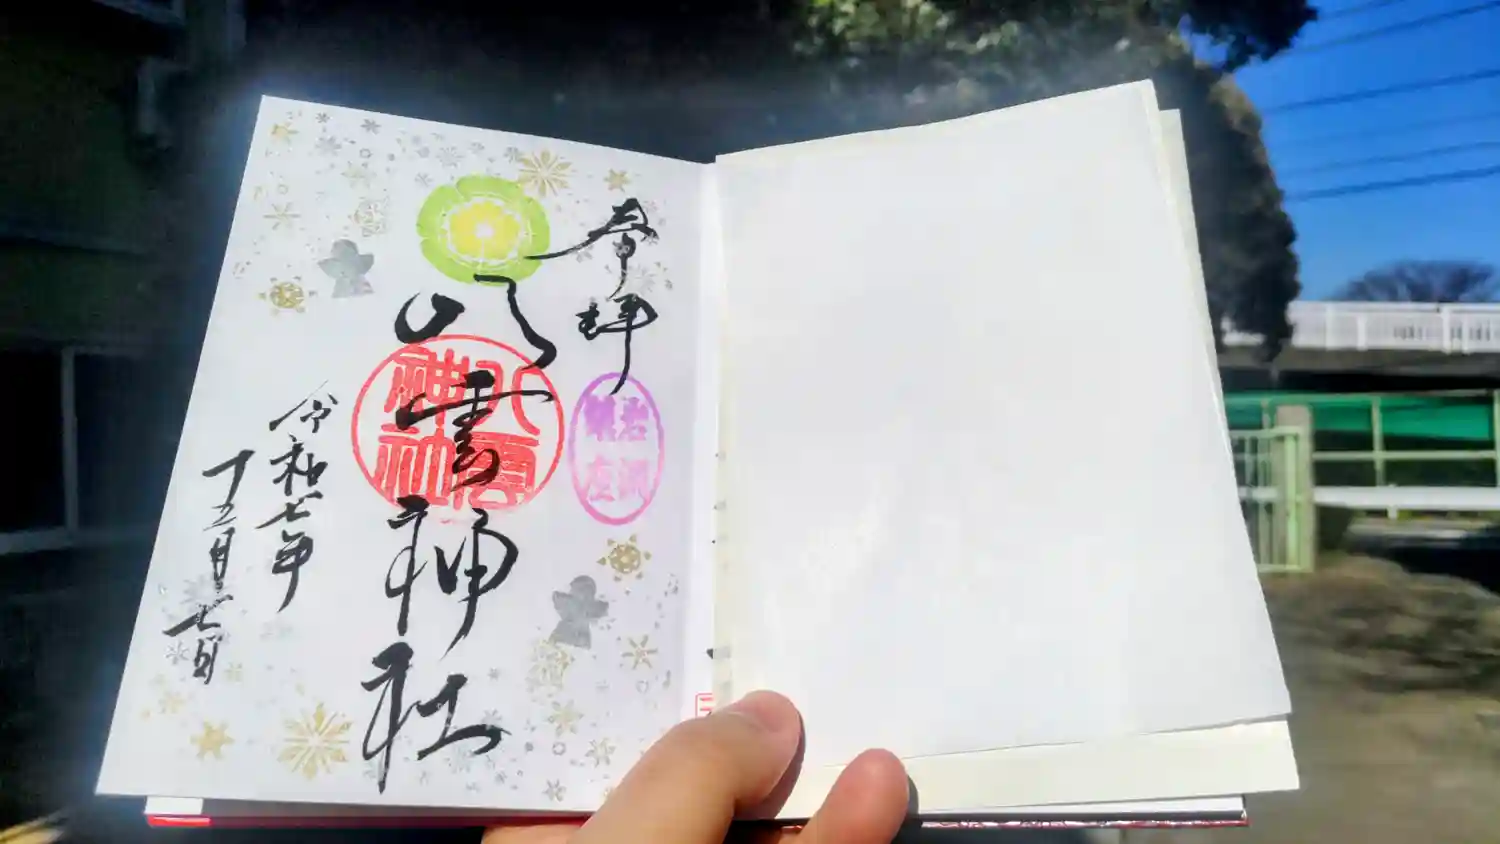 奉拝
八雲神社
八雲
神社
令和七年
十二月七日